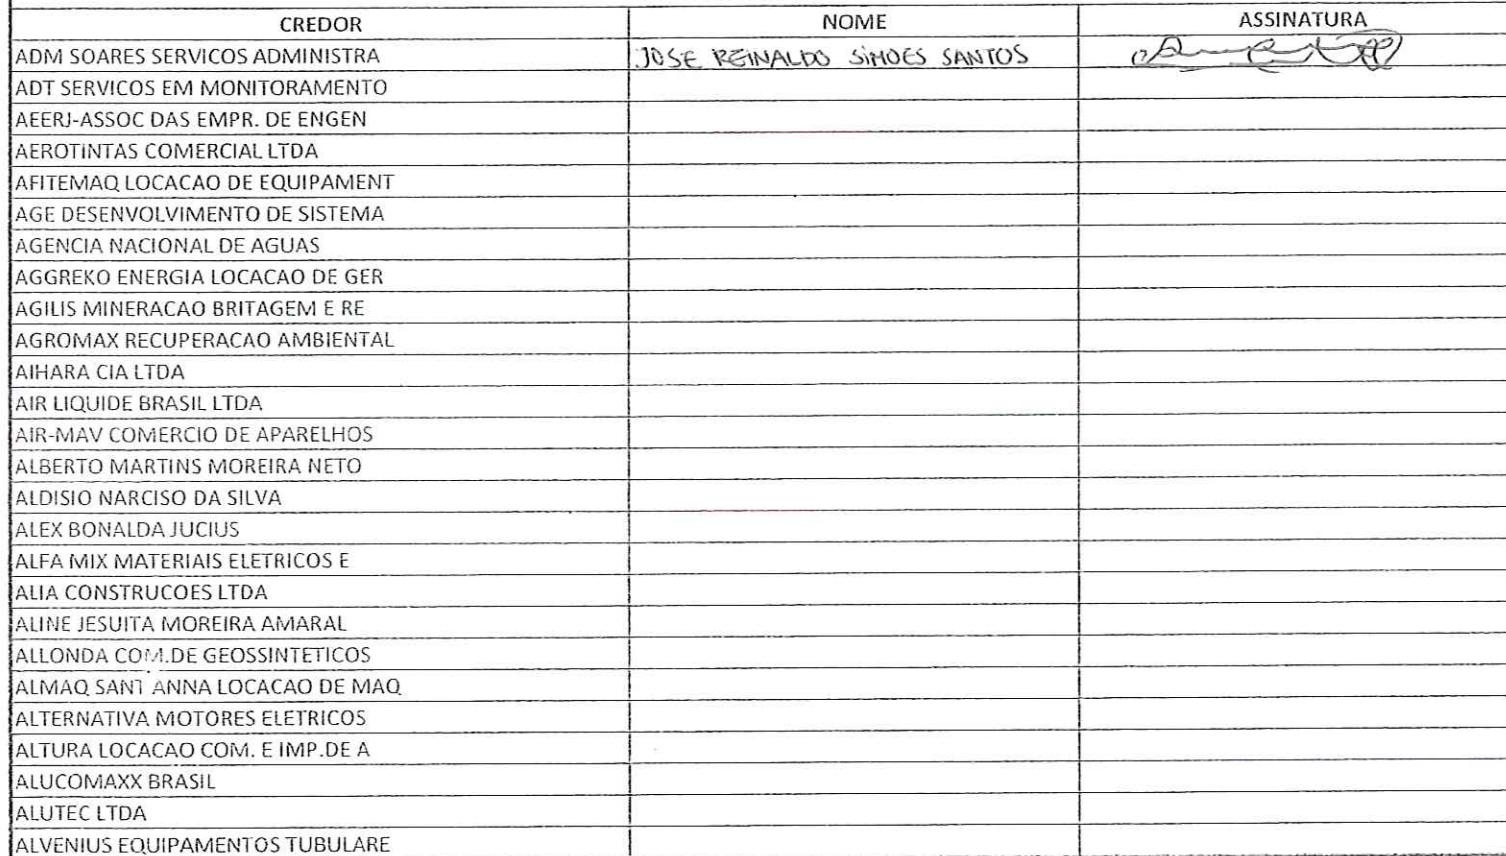 CREDOR NOME ASSINATURA
ADM SOARES SERVICOS ADMINISTRA JOSE REINALDO SIMOES SANTOS
ADT SERVICOS EM MONITORAMENTO
AEERJ-ASSOC DAS EMPR. DE ENGEN
AEROTINTAS COMERCIAL LTDA
AFITEMAQ LOCACAO DE EQUIPAMENT
AGE DESENVOLVIMENTO DE SISTEMA
AGENCIA NACIONAL DE AGUAS
AGGREKO ENERGIA LOCACAO DE GER
AGILIS MINERACAO BRITAGEM E RE
AGROMAX RECUPERACAO AMBIENTAL
AIHARA CIA LTDA
AIR LIQUIDE BRASIL LTDA
AIR-MAV COMERCIO DE APARELHOS
ALBERTO MARTINS MOREIRA NETO
ALDISIO NARCISO DA SILVA
ALEX BONALDA JUCIUS
ALFA MIX MATERIAIS ELETRICOS E
ALIA CONSTRUCOES LTDA
ALINE JESUITA MOREIRA AMARAL
ALLONDA COM.DE GEOSSINTETICOS
ALMAQ SANT ANNA LOCACAO DE MAQ
ALTERNATIVA MOTORES ELETRICOS
ALTURA LOCACAO COM. E IMP.DE A
ALUCOMAXX BRASIL
ALUTEC LTDA
ALVENIUS EQUIPAMENTOS TUBULARE